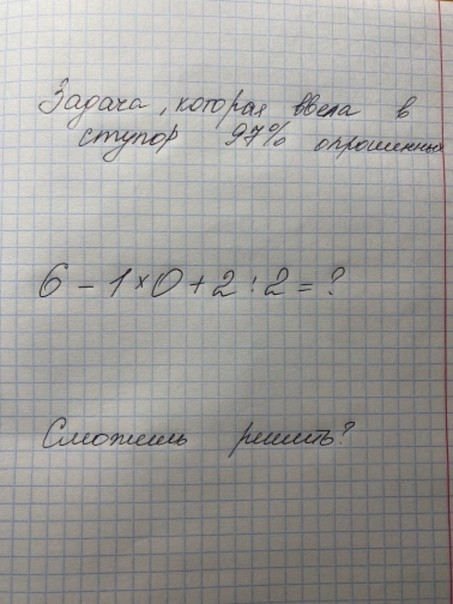 Задача, которая ввела в
ступор 97% опрошенных
6 - 1 × 0 + 2 : 2 = ?
Сможешь решить?